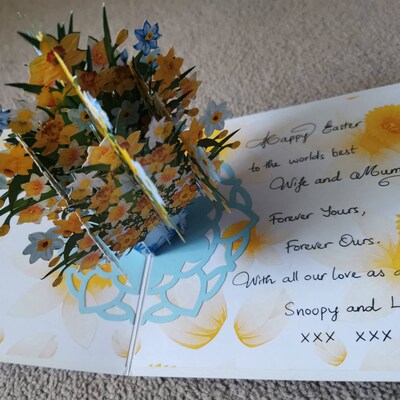 Happy Easter
to the worlds best
Wife and Mum
Forever Yours,
Forever Ours.
With all our love as
Snoopy and
xxx xxx